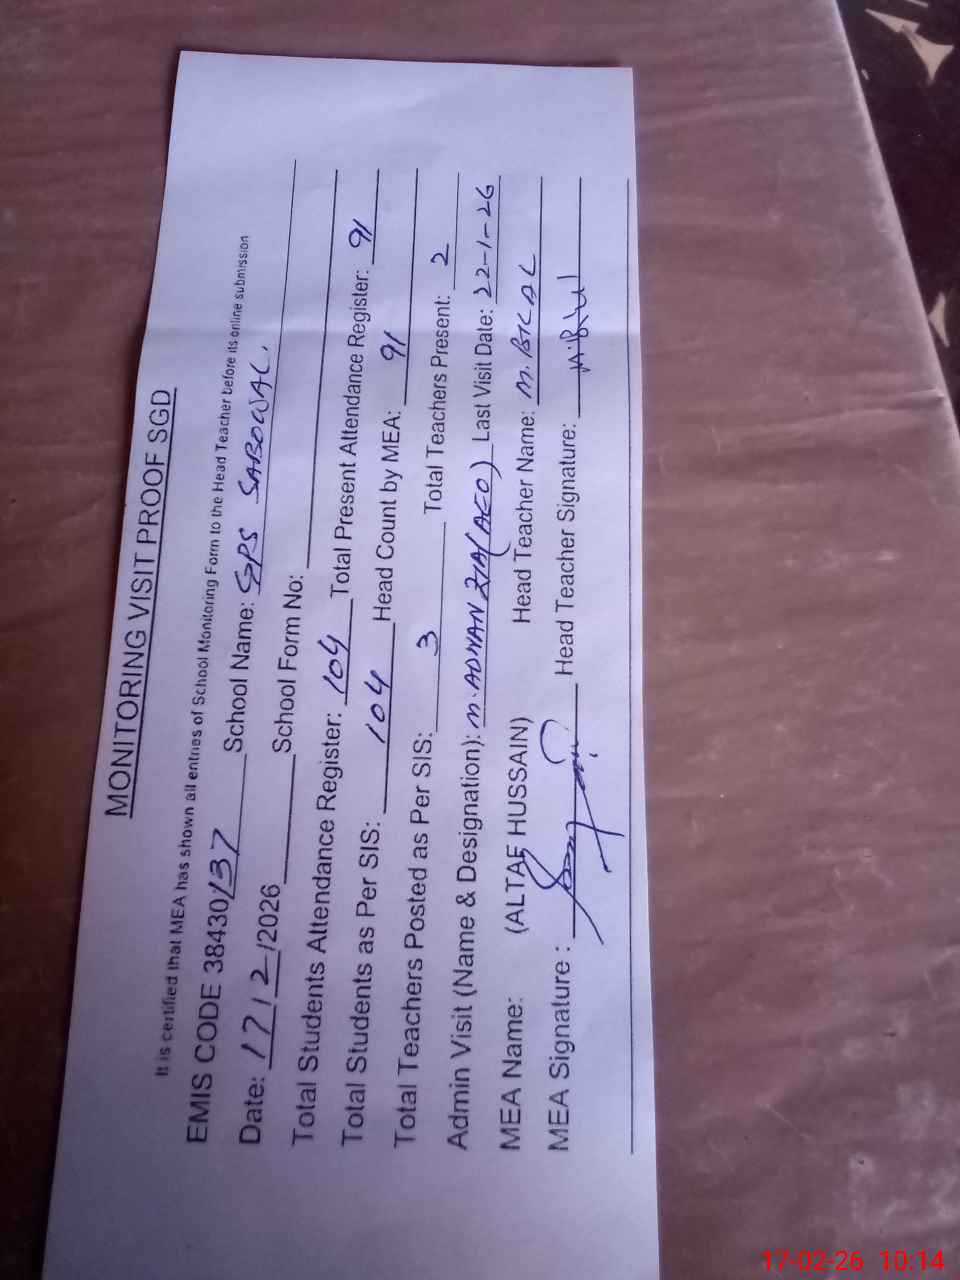 MONITORING VISIT PROOF SGD
It is certified that MEA has shown all entries of School Monitoring Form to the Head Teacher before its online submission
EMIS CODE 38430137 School Name: GPS SABOWAL.
Date: 17/2/2026 School Form No:
Total Students Attendance Register: 104 Total Present Attendance Register: 91
Total Students as Per SIS: 104 Head Count by MEA: 91
Total Teachers Posted as Per SIS: 3 Total Teachers Present: 2
Admin Visit (Name & Designation): M. ADNAN ZIA (AEO) Last Visit Date: 22-1-26
MEA Name: (ALTAF HUSSAIN) Head Teacher Name: M. BILAL
MEA Signature : Head Teacher Signature:
17-02-26 10:14